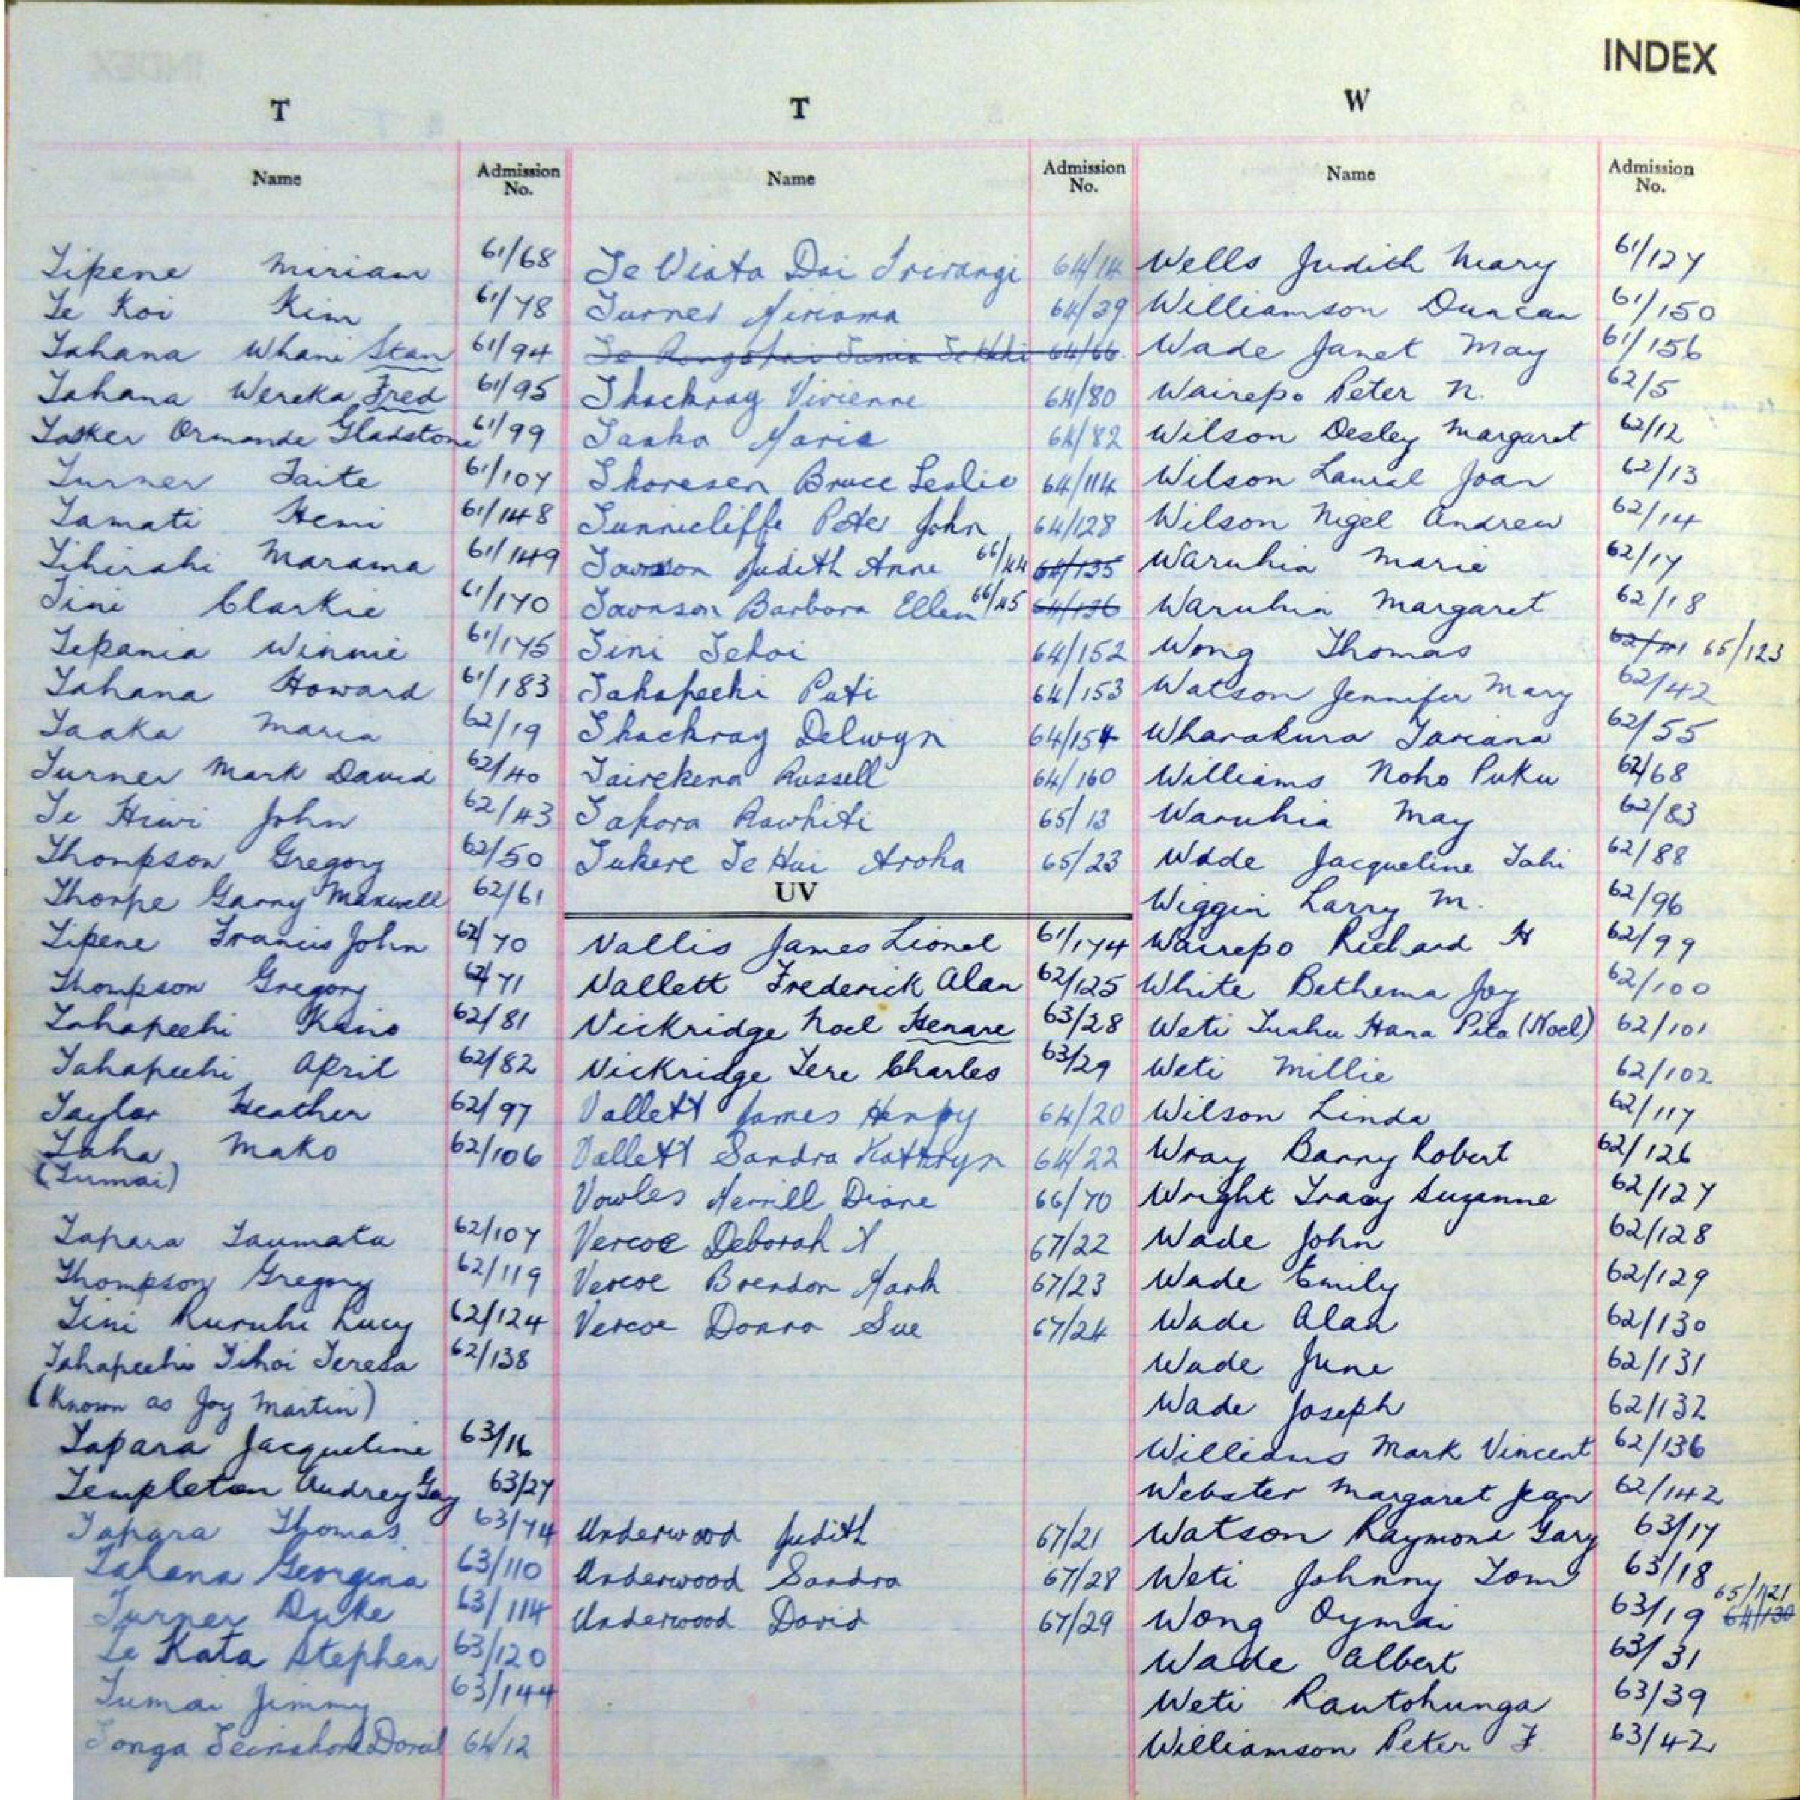 INDEX
T
Name Admission No.
Tipene Miriam 61/68
Te Koi Kim 61/78
Tahana Whani Stan 61/94
Tahana Wereka Fred 61/95
Tasker Ormande Gladstone 61/99
Turner Taite 61/107
Tamati Hemi 61/148
Tihirahi Marama 61/149
Tini Clarkie 61/170
Tepania Winnie 61/175
Tahana Howard 61/183
Taaka Maria 62/19
Turner Mark David 62/40
Te Hiwi John 62/43
Thompson Gregory 62/50
Thorpe Garry Maxwell 62/61
Tipene Francis John 62/70
Thompson Gregory 62/71
Tahapeehi 62/81
Tahapeehi April 62/82
Taylor Heather 62/97
Taha Mako 62/106
(Tumai)
Tapara Taumata 62/107
Thompson Gregory 62/119
Tini Ruruhi Lucy 62/124
Tahapeehi Tihoi Teresa 62/138
(Known as Joy Martin)
Tapara Jacqueline 63/16
Templeton Audrey Gay 63/27
Tapara Thomas 63/74
Tahana Georgina 63/110
Turner Duke 63/114
Te Kata Stephen 63/120
Tumai Jimmy 63/144
Tonga David 64/12
T
Name Admission No.
Te Viata Dai 64/14
Turner Miriama 64/39
64/66
Thackray Vivienne 64/80
Taaka Marie 64/82
Thoresen Bruce Leslie 64/114
Tunnicliffe Peter John 64/128
Townson Judith Anne 66/44 64/135
Townson Barbara Ellen 66/45 64/136
Tini Tehoi 64/152
Tahapeehi Pati 64/153
Thackray Delwyn 64/154
Tairekena Russell 64/160
Tapara Rawhiti 65/13
Tukere Te Hui Aroha 65/23
UV
Vallis James Lionel 61/174
Vallett Frederick Alan 62/125
Vickridge Noel Henare 63/28
Vickridge Tere Charles 63/29
Vallett James Henry 64/20
Vallett Sandra Kathryn 64/22
Vowles Merrill Diane 66/70
Vercoe Deborah 67/22
Vercoe Brendon Mark 67/23
Vercoe Donna Sue 67/24
Underwood Judith 67/21
Underwood Sandra 67/28
Underwood David 67/29
W
Name Admission No.
Wells Judith Mary 61/127
Williamson Duncan 61/150
Wade Janet May 61/156
Wairepo Peter N. 62/5
Wilson Desley Margaret 62/12
Wilson Laurel Joan 62/13
Wilson Nigel Andrew 62/14
Waruhia Marie 62/17
Waruhia Margaret 62/18
Wong Thomas 65/123
Watson Jennifer Mary 62/42
Wharakura Tariana 62/55
Williams Noho Puku 62/68
Waruhia May 62/83
Wade Jacqueline Tahi 62/88
Wiggin Larry M. 62/96
Wairepo Richard H 62/99
White Bethema Joy 62/100
Weti Tuahu Hana Pita (Noel) 62/101
Weti Millie 62/102
Wilson Linda 62/117
Wray Barry Robert 62/126
Wright Tracy Suzanne 62/127
Wade John 62/128
Wade Emily 62/129
Wade Alan 62/130
Wade June 62/131
Wade Joseph 62/132
Williams Mark Vincent 62/136
Webster Margaret Jean 62/142
Watson Raymond Gary 63/17
Weti Johnny Tom 63/18
Wong Oymai 63/19 65/121 64/130
Wade Albert 63/31
Weti Rautohunga 63/39
Williamson Peter F. 63/42